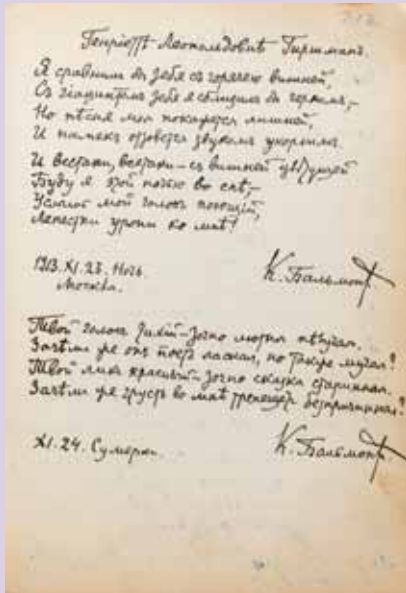 Генріэттѣ Леопольдовнѣ Гиршманъ.
Я сравнилъ бы тебя съ горячею вишней,
Съ гіацинтомъ тебя я сблизилъ бы
Но пѣсня моя покажется лишней,
И намекъ отзовется звукомъ укорнымъ.
И всетаки, всетаки – съ вишней цвѣтущей
Буду я этой ночью во снѣ, –
Услышь мой голосъ поющій,
Лепестки урони ко мнѣ!
1913. XI. 23. Ночь.
Москва.
К. Бальмонтъ
Твой голосъ тихій – точно лютня пѣвучая.
Зачѣмъ же онъ поетъ лаская, но также мучая?
Твой ликъ красивый – точно сказка старинная.
Зачѣмъ же грусть во мнѣ трепещетъ безпричинная?
XI. 24. Сумерки.
К. Бальмонтъ